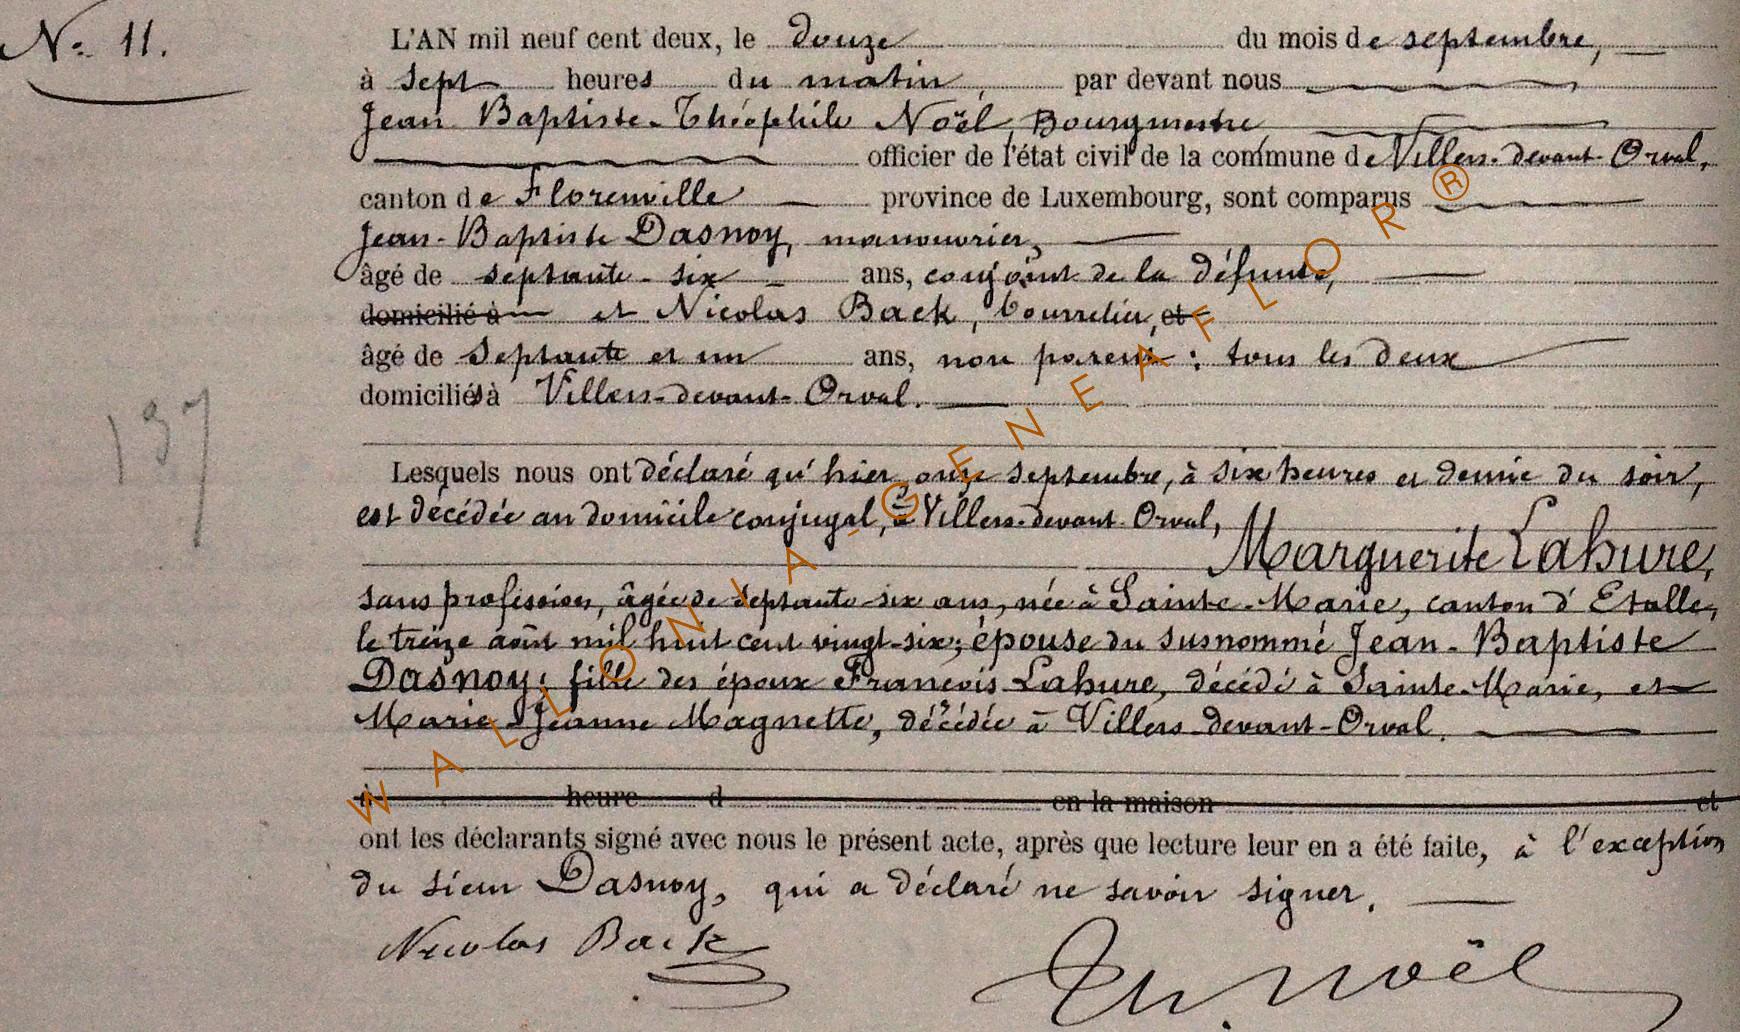 N° 11.
L'AN mil neuf cent deux, le douze du mois de septembre,
à sept heures du matin, par devant nous
Jean Baptiste-Théophile Noël, Bourgmestre,
officier de l'état civil de la commune de Villers-devant-Orval,
canton de Florenville province de Luxembourg, sont comparus
Jean-Baptiste Dasnoy, manouvrier,
âgé de septante-six ans, conjoint de la défunte,
domicilié à et Nicolas Back, bourrelier, et
âgé de septante et un ans, non parent : tous les deux
domiciliés à Villers-devant-Orval.
137
Lesquels nous ont déclaré qu'hier, onze septembre, à six heures et demie du soir,
est décédée au domicile conjugal, à Villers-devant-Orval,
Marguerite Lahure,
sans profession, âgée de septante-six ans, née à Sainte-Marie, canton d'Etalle,
le treize août mil huit cent vingt-six; épouse du susnommé Jean-Baptiste
Dasnoy; fille des époux François Lahure, décédé à Sainte-Marie, et
Marie-Jeanne Magnette, décédée à Villers-devant-Orval.
à heure d en la maison et
ont les déclarants signé avec nous le présent acte, après que lecture leur en a été faite, à l'exception
du sieur Dasnoy, qui a déclaré ne savoir signer.
Nicolas Back
Th. Noël
WALLONIA-GENEAFLOR®